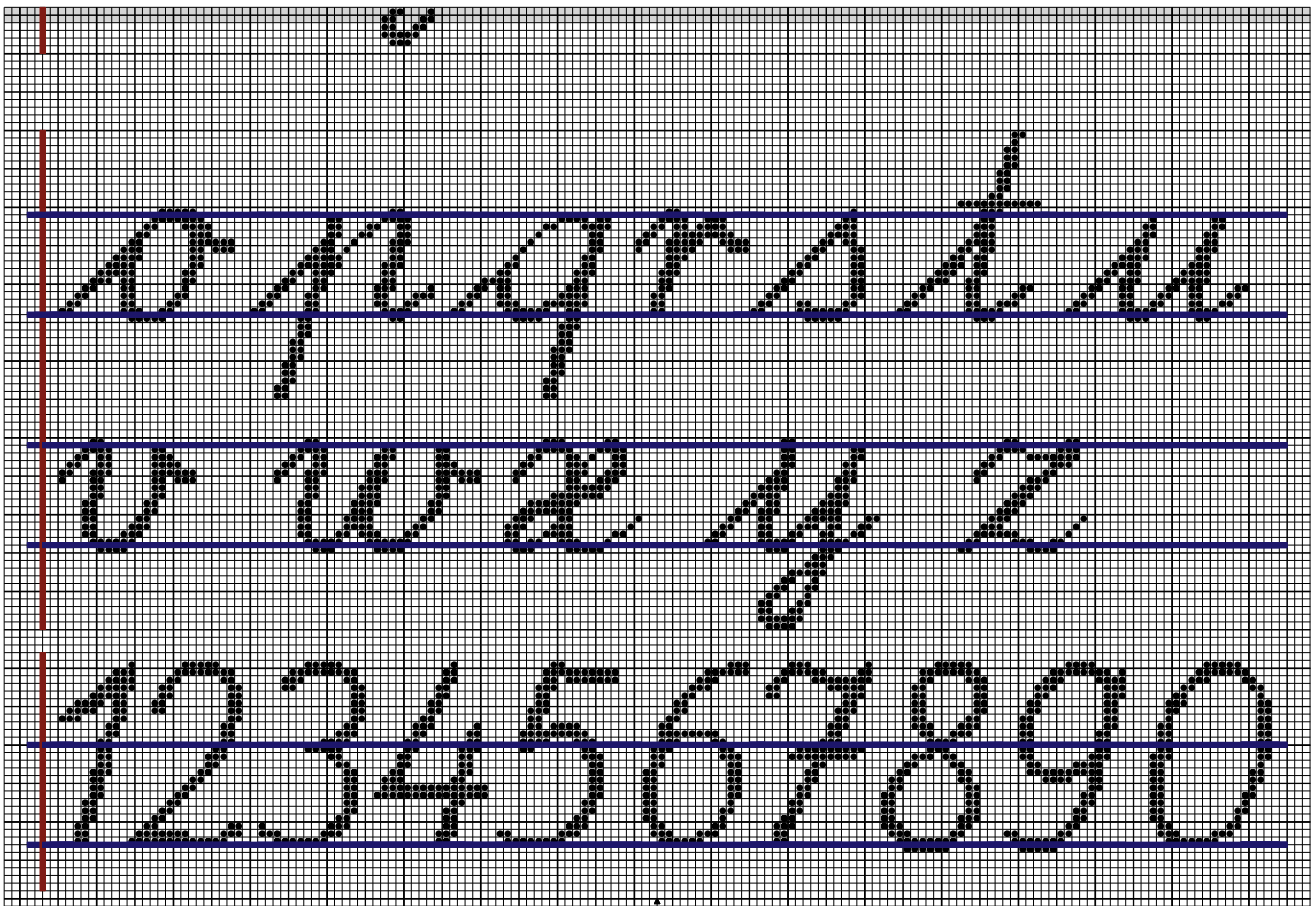 o p q r s t u
v w x y z
1 2 3 4 5 6 7 8 9 0